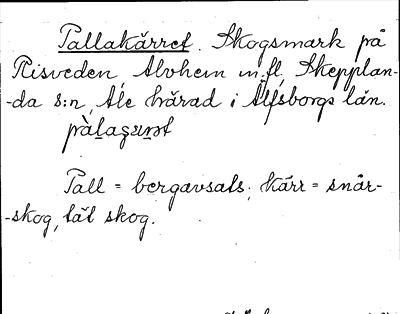 Pallakärret. Skogsmark på
Risveden, Alvhem m.fl, Skepplan-
-da s:n, Ale härad i Älfsborgs län.
Pall = bergavsats; kärr = snår-
-skog, tät skog.